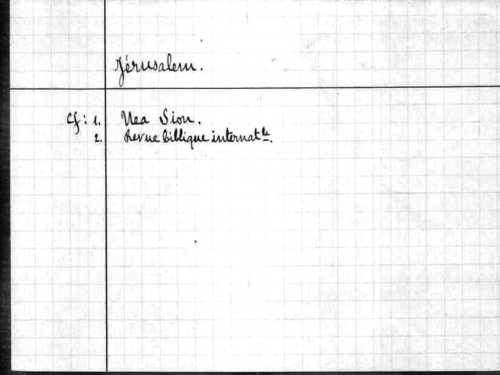 Jérusalem.
Cf: 1. Nea Sion.
2. Revue biblique internatle.